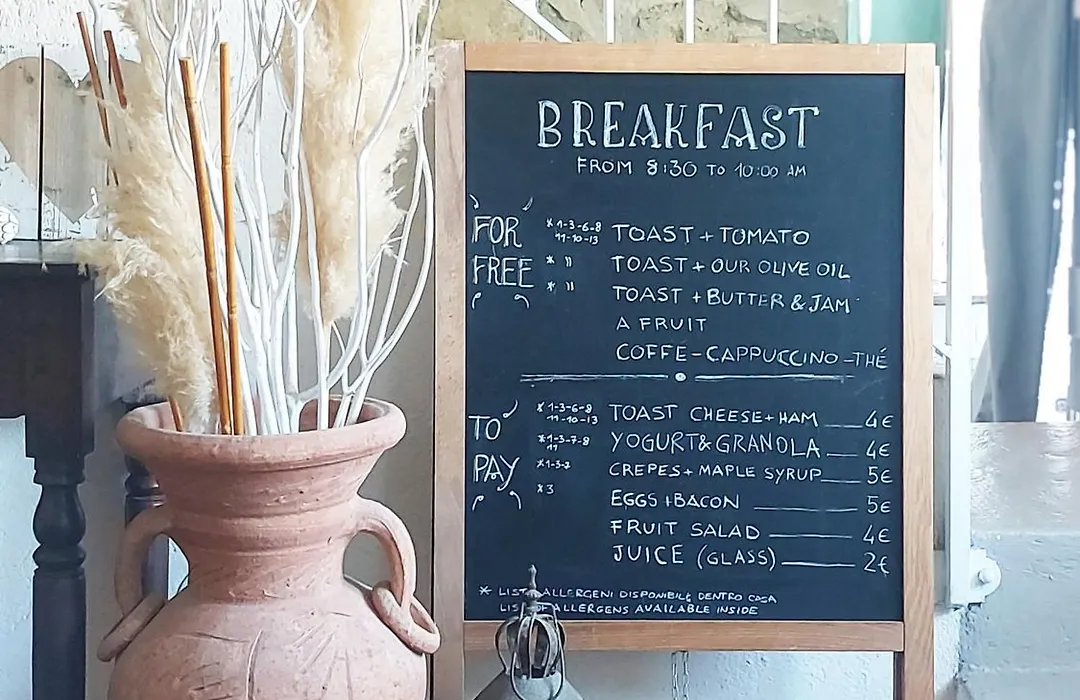 BREAKFAST
FROM 8:30 TO 10:00 AM
FOR FREE
* 1-3-6-8 11-10-13 TOAST + TOMATO
* " TOAST + OUR OLIVE OIL
* " TOAST + BUTTER & JAM
A FRUIT
COFFE - CAPPUCCINO - THÉ
TO PAY
* 1-3-6-8 11-10-13 TOAST CHEESE + HAM 4€
* 1-3-7-8 11 YOGURT & GRANOLA 4€
* 1-3-7 CREPES + MAPLE SYRUP 5€
* 3 EGGS + BACON 5€
FRUIT SALAD 4€
JUICE (GLASS) 2€
* LISTA ALLERGENI DISPONIBILE DENTRO CASA
LIST OF ALLERGENS AVAILABLE INSIDE